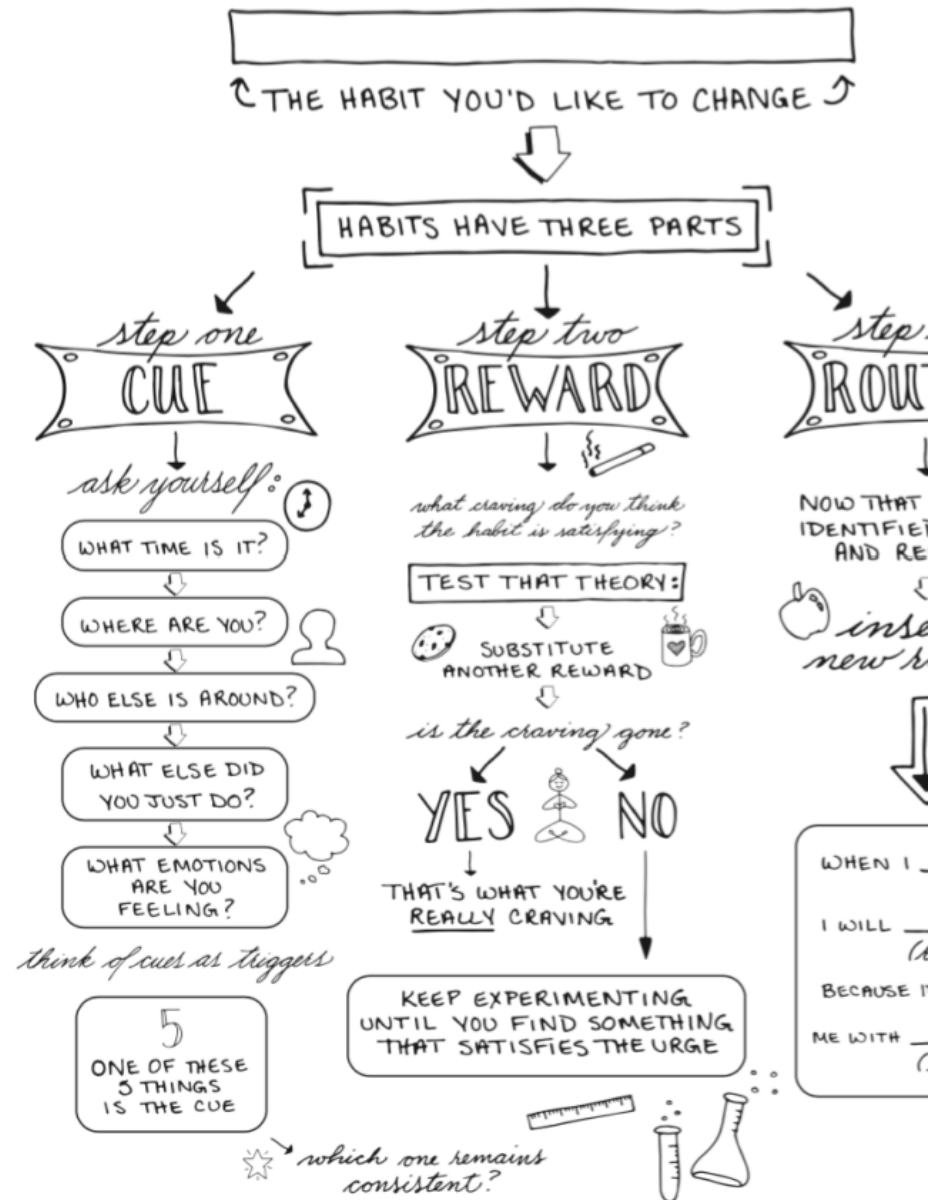 THE HABIT YOU'D LIKE TO CHANGE
HABITS HAVE THREE PARTS
step one
CUE
ask yourself:
WHAT TIME IS IT?
WHERE ARE YOU?
WHO ELSE IS AROUND?
WHAT ELSE DID
YOU JUST DO?
WHAT EMOTIONS
ARE YOU
FEELING?
think of cues as triggers
5
ONE OF THESE
5 THINGS
IS THE CUE
which one remains
consistent?
step two
REWARD
what craving do you think
the habit is satisfying?
TEST THAT THEORY:
SUBSTITUTE
ANOTHER REWARD
is the craving gone?
YES
NO
THAT'S WHAT YOU'RE
REALLY CRAVING
KEEP EXPERIMENTING
UNTIL YOU FIND SOMETHING
THAT SATISFIES THE URGE
step
NOW THAT
AND
new
WHEN I
I WILL
BECAUSE
ME WITH